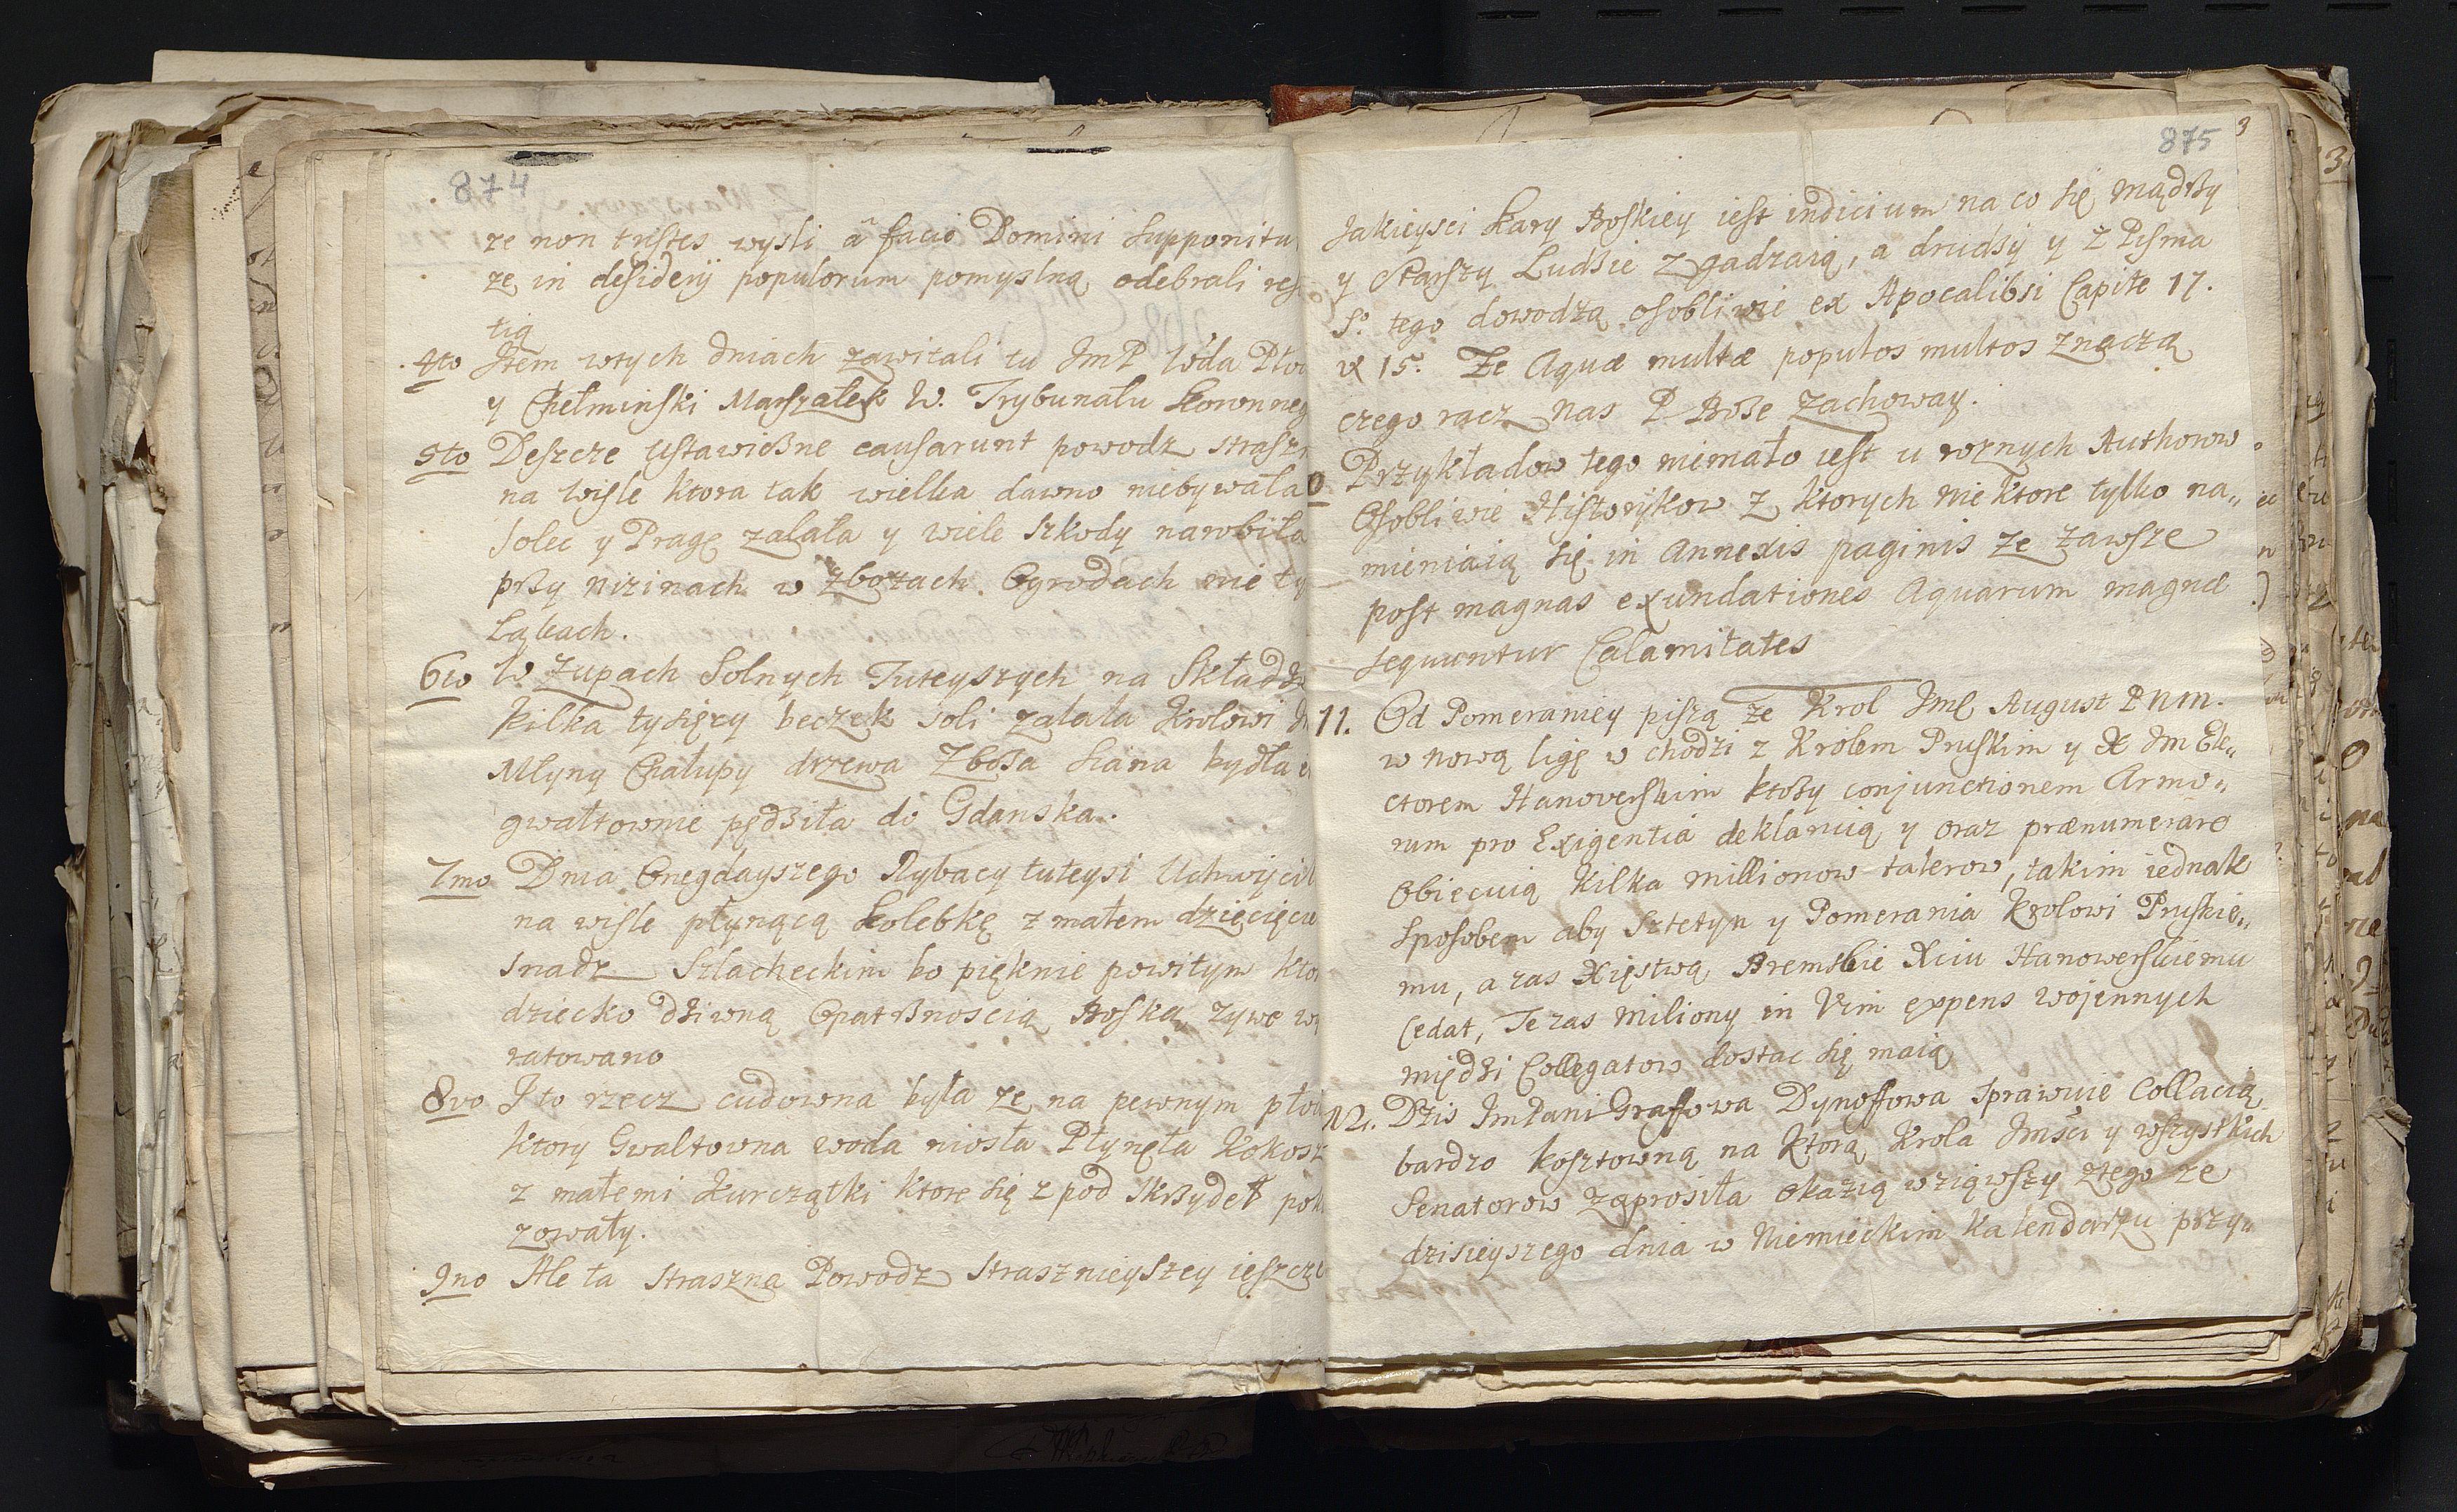 874
ze non tristes wysli â facie Domini supponitu
ze in desiderij populorum pomyslną odebrali res
tią
4to Item wtych dniach zawitali tu JmP Wda Pło
y Chełminski Marszałek W. Trybunału Koronneg
5to Deszcze ustawiczne causarunt powodz strasz
na Wisle ktora tak wielka dawno niebywała
Solec y Pragę zalała y wiele szkody narobiła
przy nizinach w zbozach. Ogrodach nie ty
Łąkach.
6to W Zupach Solnych Tuteyszych na Składz
kilka tysięcy beczek soli zalała Krolowi
Młyny Chałupy drzewa Zboza siana bydła
gwałtownie pędziła do Gdanska.
7mo Dnia Onegdayszego Rybacy tuteysi Uchwycil
na wisle płynącą kolebkę z małem dziecięciu
snadz Szlacheckim bo pięknie powitym kto
dziecko dziwną Opatrznoscią Boską zywe wy
ratowano
8vo I to rzecz cudowna była ze na pewnym pło
ktory Gwałtowna woda niosła Płynęła Kokosz
z małemi Kurczątki ktore się z pod skrzydeł pok
zowały.
9no Ale ta straszna Powodz strasznieyszey ieszcze
875 3
Jakieysci kary Boskiey iest indicium na co się mądrzy
y Starszy Ludzie zgadzaią, a drudzy y z Pisma
So tego dowodzą osobliwie ex Apocalibsi Capite 17.
v 15. Ze Aquæ multæ populos multos znaczą
czego racz nas P. Boze Zachoway.
Przykładow tego niemało iest u roznych Authorow
Osobliwie Historykow z ktorych niektore tylko na„
mieniaią się in annexis paginis ze zawsze
post magnas exundationes Aquarum magnæ
sequuntur Calamitates
11. Od Pomeraniey piszą ze Krol Jmę August P n m.
w nową ligę wchodzi z Krolem Pruskim y X Jm Ele„
ctorem Hanoverskim ktorzy conjunctionem Armo„
rum pro Exigentia deklaruią y oraz prænumerare
Obiecuią kilka millionow talerow, takim iednak
sposobem aby Sztetyn y Pomerania Krolowi Pruskie„
mu, a zas Xięstwa Bremskie Xciu Hanowerskiemu
cedat, Te zas miliony in Vim expens wojennych
między Collegatow dostac się maią
12. Dzis Jm Pani Graffowa Dynoffowa sprawuie Collacią
bardzo kosztowną na ktorą Krola Jmsci y wszystkich
Senatorow zaprosiła okazią wziąwszy ztego ze
dzisieyszego dnia w Niemieckim kalendarzu przy„